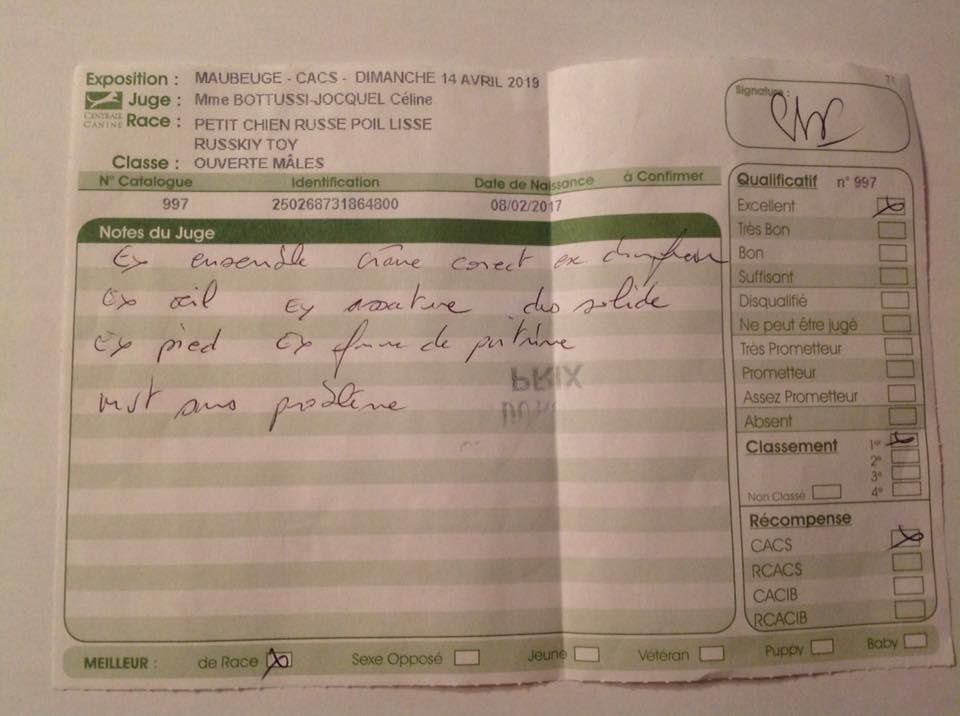 Exposition : MAUBEUGE - CACS - DIMANCHE 14 AVRIL 2019
CENTRALE CANINE
Juge : Mme BOTTUSSI-JOCQUEL Céline
Race : PETIT CHIEN RUSSE POIL LISSE
RUSSKIY TOY
Classe : OUVERTE MÂLES
Signature :
N° Catalogue Identification Date de Naissance à Confirmer
997 250268731864800 08/02/2017
Notes du Juge
Ex ensemble crâne correct ex chanfrein
Ex œil Ex ossature dos solide
Ex pied Ex forme de poitrine
mvt sans problème
PRIX
Qualificatif n° 997
Excellent
Très Bon
Bon
Suffisant
Disqualifié
Ne peut être jugé
Très Prometteur
Prometteur
Assez Prometteur
Absent
Classement 1er
2e
3e
Non Classé 4e
Récompense
CACS
RCACS
CACIB
RCACIB
MEILLEUR : de Race Sexe Opposé Jeune Vétéran Puppy Baby